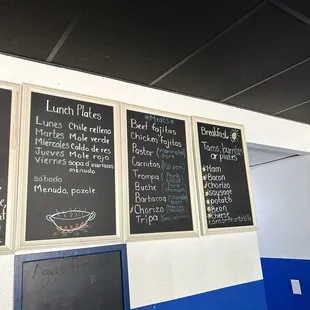 Lunch Plates
Lunes Chile relleno
Martes Mole verde
Miercoles Caldo de res
Jueves Mole rojo
viernes sopa d mariscos
sabado
Menudo, pozole
menudo
*Meats*
Beef fajitas
Chicken fajitas
Pastor
Carnitas
Trompa
Buche
Barbacoa
Chorizo
Tripa
Breakfast
Tacos, burritos
or plates
*Ham
*Bacon
*Chorizo
*sausage
*potato
*Bean
*cheese
Aguas